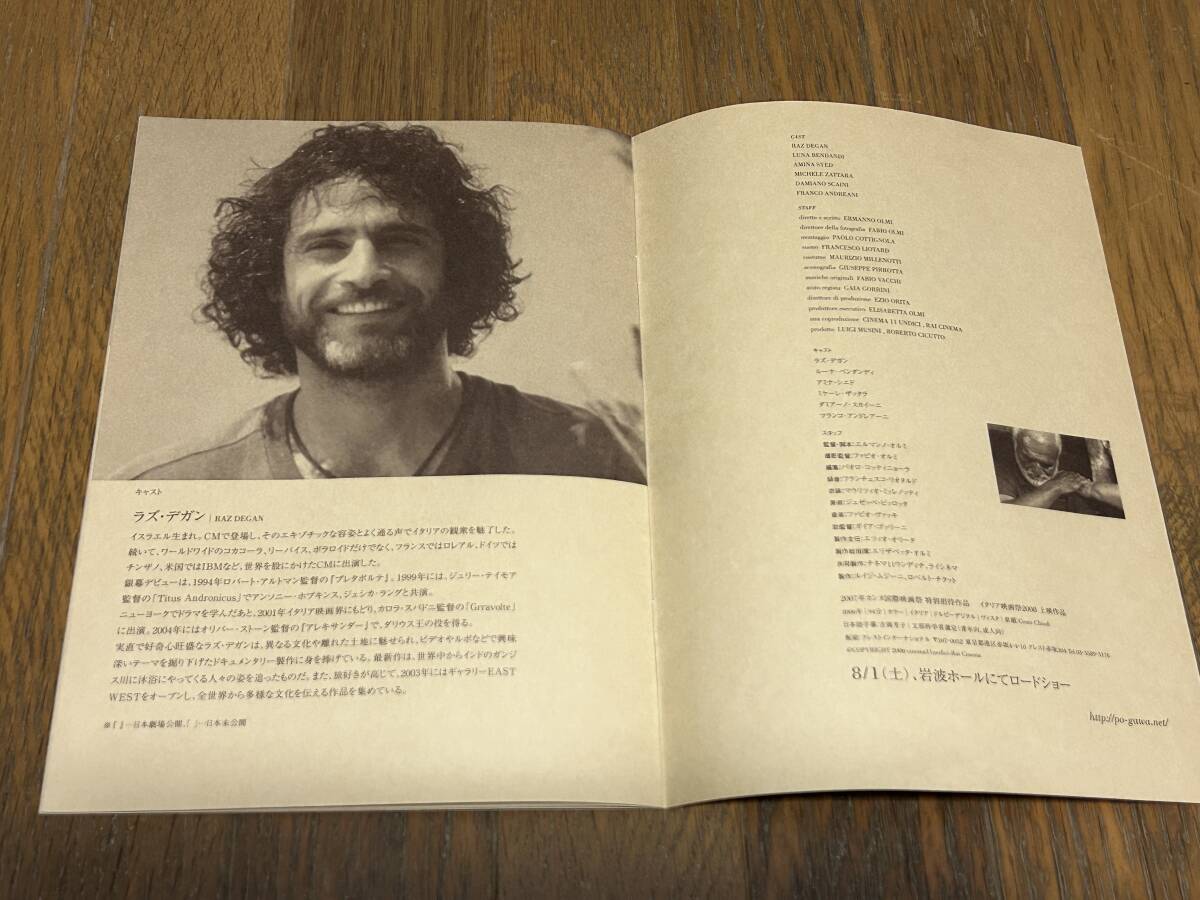 キャスト
ラズ・デガン | RAZ DEGAN
イスラエル生まれ。CMで登場し、そのエキゾチックな容姿とよく通る声でイタリアの観衆を魅了した。
続いて、ワールドワイドのコカコーラ、リーバイス、ポラロイドだけでなく、フランスではロレアル、ドイツでは
チンザノ、米国ではIBMなど、世界を股にかけたCMに出演した。
銀幕デビューは、1994年ロバート・アルトマン監督の『プレタポルテ』。1999年には、ジュリー・テイモア
監督の「Titus Andronicus」でアンソニー・ホプキンス、ジェシカ・ラングと共演。
ニューヨークでドラマを学んだあと、2001年イタリア映画界にもどり、カロラ・スパドニ監督の「Giravolte」
に出演。2004年にはオリバー・ストーン監督の『アレキサンダー』で、ダリウス王の役を得る。
実直で好奇心旺盛なラズ・デガンは、異なる文化や離れた土地に魅せられ、ビデオやルポなどで興味
深いテーマを掘り下げたドキュメンタリー製作に身を捧げている。最新作は、世界中からインドのガンジ
ス川に沐浴にやってくる人々の姿を追ったものだ。また、旅好きが高じて、2003年にはギャラリーEAST
WESTをオープンし、全世界から多様な文化を伝える作品を集めている。
※『 』…日本劇場公開、「 」…日本未公開
CAST
RAZ DEGAN
LUNA BENDANDI
AMINA SYED
MICHELE ZATTARA
DAMIANO SCAINI
FRANCO ANDREANI
STAFF
diretto e scritto ERMANNO OLMI
direttore della fotografia FABIO OLMI
montaggio PAOLO COTTIGNOLA
suono FRANCESCO LIOTARD
costume MAURIZIO MILLENOTTI
scenografia GIUSEPPE PIRROTTA
musiche originali FABIO VACCHI
aiuto regista GAIA GORRINI
direttore di produzione EZIO ORITA
produttore esecutivo ELISABETTA OLMI
una coproduzione CINEMA 11 UNDICI , RAI CINEMA
prodotto LUIGI MUSINI , ROBERTO CICUTTO
キャスト
ラズ・デガン
ルーナ・ベンダンディ
アミナ・シエド
ミケーレ・ザッタラ
ダミアーノ・スカイーニ
フランコ・アンドレアーニ
スタッフ
監督・脚本:エルマンノ・オルミ
撮影監督:ファビオ・オルミ
編集:パオロ・コッティニョーラ
録音:フランチェスコ・リオタルド
衣装:マウリツィオ・ミッレノッティ
美術:ジュゼッペ・ピッロッタ
音楽:ファビオ・ヴァッキ
助監督:ガイア・ゴッリーニ
製作主任:エツィオ・オリータ
製作総指揮:エリザベッタ・オルミ
共同製作:チネマ11ウンディチ、ライシネマ
製作:ルイジ・ムジーニ、ロベルト・チクット
2007年カンヌ国際映画祭 特別招待作品 イタリア映画祭2008 上映作品
8/1(土)、岩波ホールにてロードショー
http://po-gawa.net/